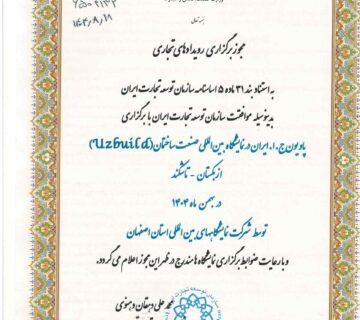 بسمه تعالی
مجوز برگزاری رویدادهای تجاری
به استناد بند ۳۱ ماده ۵ اساسنامه سازمان توسعه تجارت ایران
بدینوسیله موافقت سازمان توسعه تجارت ایران با برگزاری
پاویون ج.ا.ایران در نمایشگاه بین المللی صنعت ساختمان (Uzbuild)
ازبکستان - تاشکند
در بهمن ماه ۱۴۰۴
توسط شرکت نمایشگاههای بین المللی استان اصفهان
و با رعایت ضوابط برگزاری نمایشگاه مندرج در ظهر این مجوز اعلام می گردد.
محمد علی دهقان دهنوی